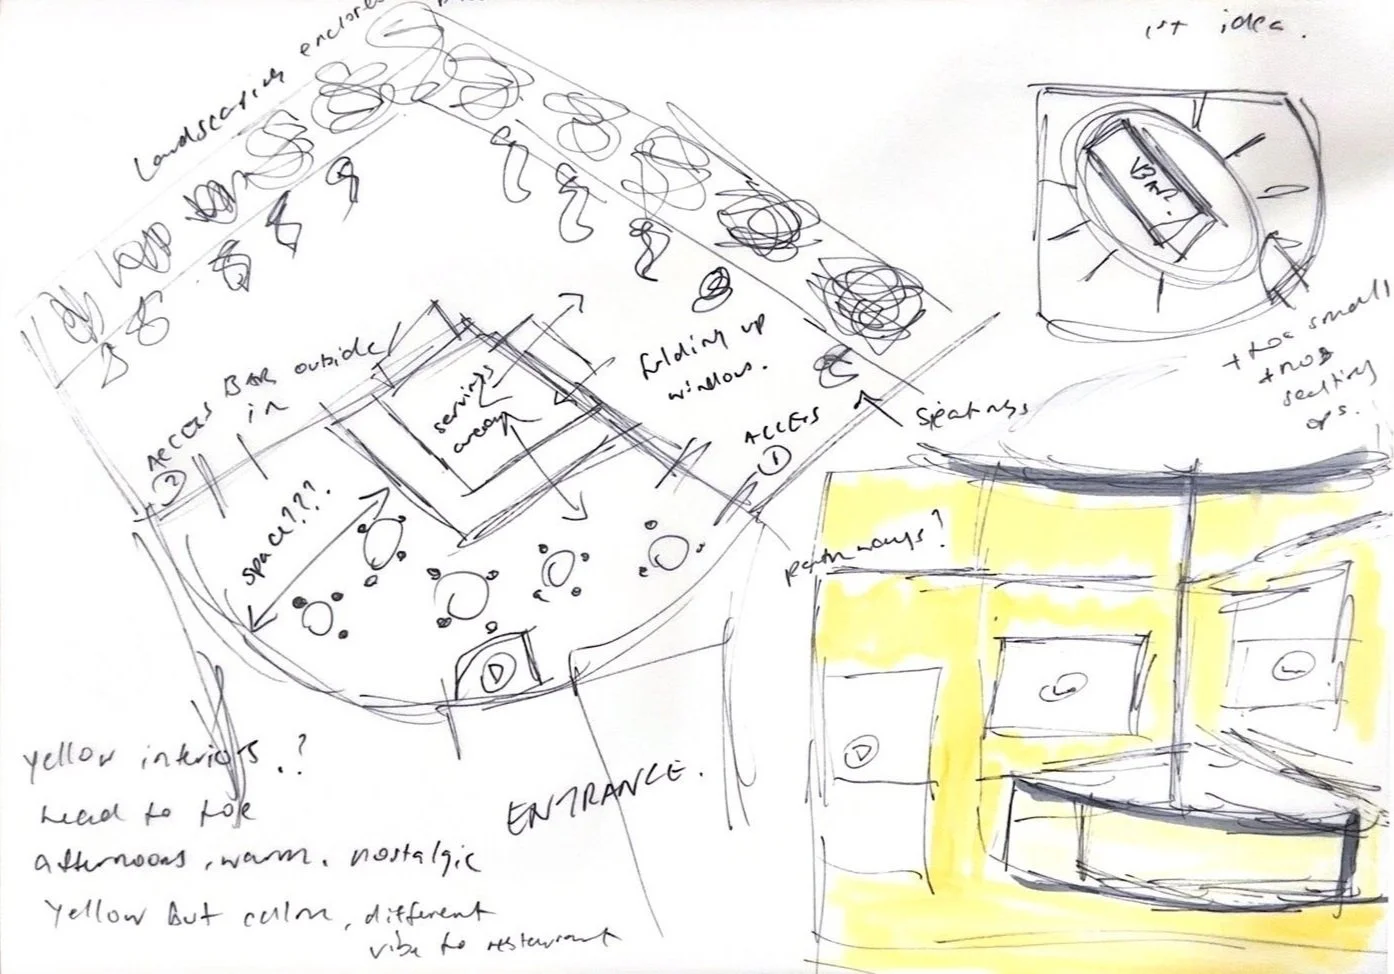 Landscaping enclosed
1st idea.
BAR.
+ too small
+ no
seating
ops.
ACCESS BAR outside
in
2
servings
area
folding up
windows.
ACCESS
1
Seatings
space???
pathways?
D
ENTRANCE.
D
yellow interiors.?
Head to toe
afternoons, warm. nostalgic
Yellow But calm, different
vibe to restaurant